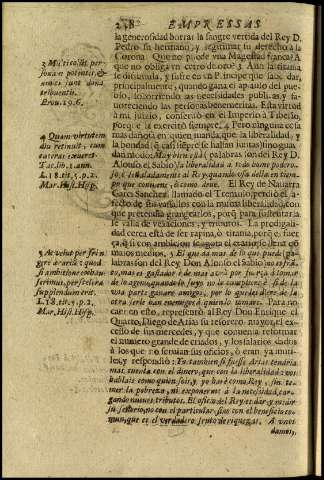 238 EMPRESSAS
la generosidad borrar la sangre vertida del Rey D.
Pedro su hermano, y legitimar su derecho à la
Corona. Que no puede vna Magestad franca? A
que no obliga vn cetro de oro? 3 Aun la tirania
se disimula, y sufre en vn Principe que sabe dar,
principalmente, quando gana el aplauso del pue-
blo, socorriendo las necesidades publicas, y fa-
uoreciendo las personas benemeritas. Esta virtud
à mi juizio, conseruò en el Imperio à Tiberio,
porque la exercitò siempre. 4 Pero ninguna cosa
mas dañosa en quien manda, que la liberalidad, y
la bondad (que casi siempre se hallan juntas) si no guar-
dan modo: Muy bien està (palabras son del Rey D.
Alonso el Sabio) la liberalidad a todo home podero-
so, è señaladamente al Rey quando vsa della en tiem-
po que conuiene, è como deue. El Rey de Nauarra
Garci Sanchez, llamado el Tremulo, perdiò el a-
fecto de sus vasallos con la misma liberalidad, con
que pretendia grangearlos, porq̃ para sustentarla
se valia de vexaciones, y tributos. La prodigali-
dad cerca està de ser rapiña, ò tirania, porq̃ es fuer-
ça, q̃ si con ambicion se agota el erario, se llene cõ
malos medios. 5 El que da mas de lo que puede (pa-
labras son del Rey Don Alonso el Sabio) no es fran-
co, mas es gastador è de mas aurà por fuerça à tomar
de lo ageno, quando lo suyo no le cumpliere, è si de la
vna parte ganare amigos, por lo que les diere, de la
otra serle han enemigos à quien lo tomare. Para no
caer en esto, representò al Rey Don Enrique el
Quarto, Diego de Arias su tesorero mayor, el ex-
cesso de sus mercedes, y que conuenia reformar
el numero grande de criados, y los salarios dados
à los que no seruian sus oficios, ò eran ya inuti-
les, y respondiò: Yo tambien si fuese Arias tendria
mas cuenta con el dinero, que con la liberalidad: vos
hablais como quien sois, y yo harè como Rey, sin te-
mer la pobreza, ni exponerme à la necesidad, car-
gando nueuos tributos. El oficio del Rey es dar, y medir
su señorio, no con el particular, sino con el beneficio co-
mun, que es el verdadero fruto de riquezas. A vnos
damos,
3 Multi colũt per-
sonam potentis, &
amici sunt dona
tribuentis.
Prou. 19. 6.
4 Quam virtutem
diu retinuit, cum
cæteras exueret.
Tac. lib. 1. ann.
L. 18. tit. 5. p. 2.
Mar. Hist. Hisp.
5 Ac velut per frin-
gere ærariũ: quod
si ambitione exhau-
serimus, per scelera
supplendum erit.
L. 18. tit. 5. p. 2.
Mar. Hist. Hisp.